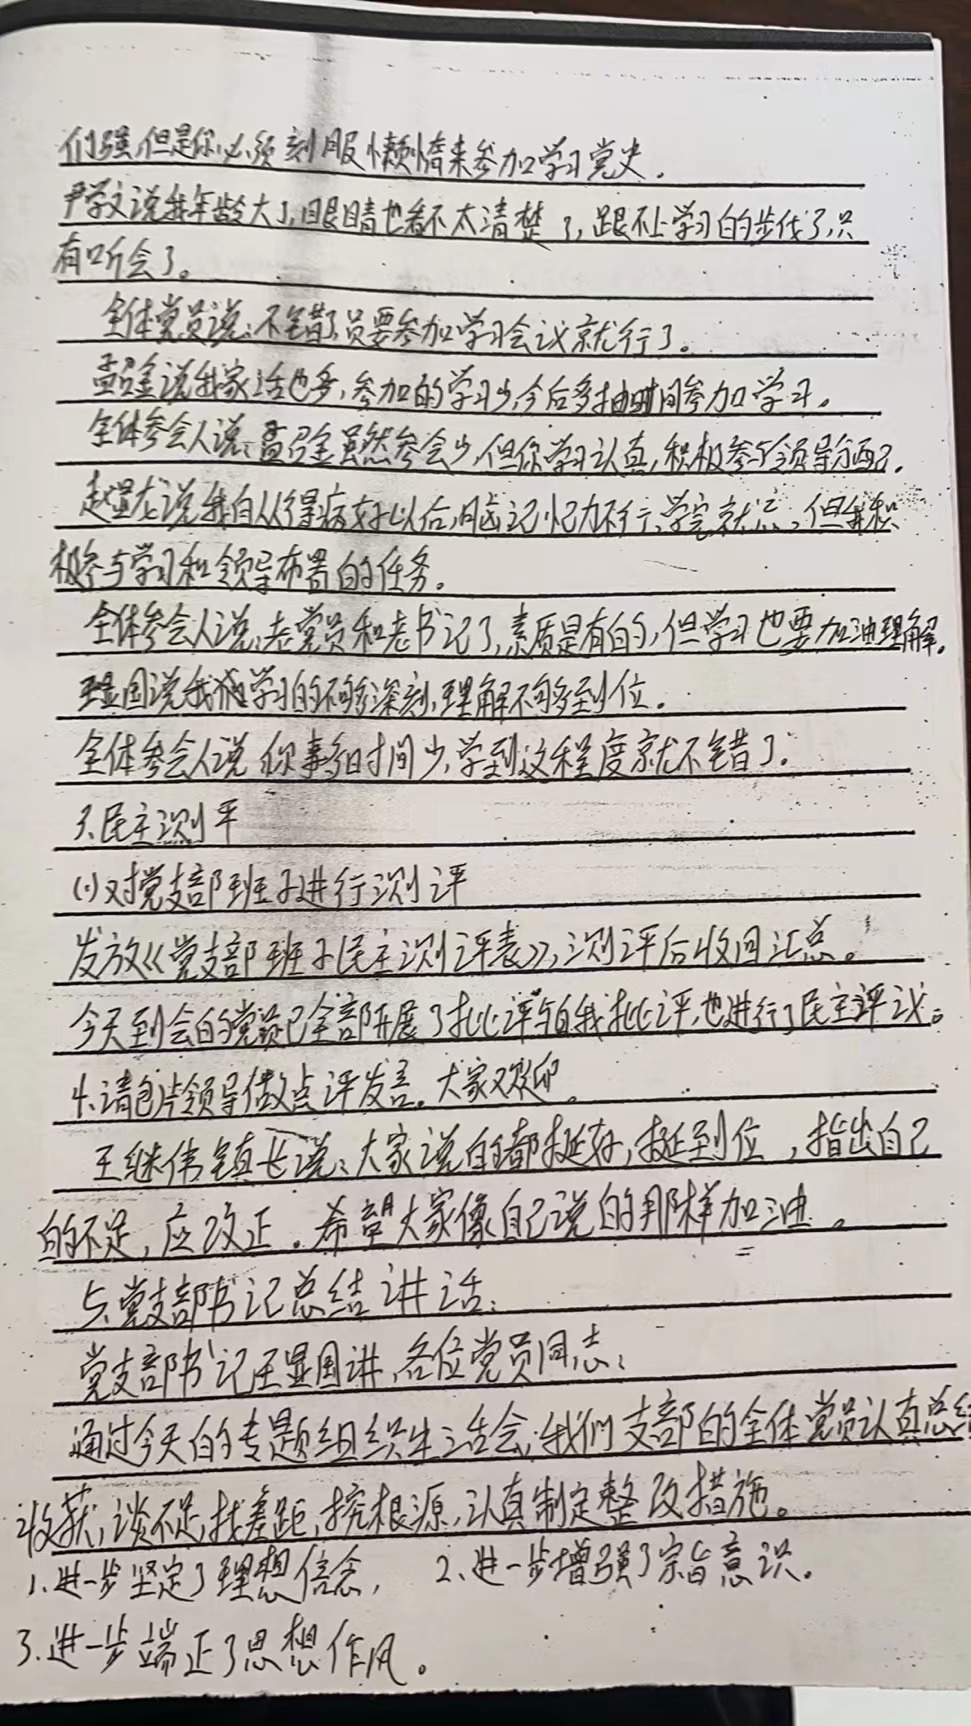 们强,但是你必须刻服懒惰来参加学习党史.
尹学文说我年龄大了,眼睛也看不太清楚了,跟不上学习的步伐了,只
有听会了。
全体党员说:不错了只要参加学习会议就行了。
孟召金说我家活也多,参加的学习少,今后多抽时间参加学习.
全体参会人说:孟召金虽然参会少,但你学习认真,积极参与领导分配.
赵显龙说我自从得病好以后,脑记忆力不行,学完就忘,但我积
极参与学习和领导布置的任务.
全体参会人说,老党员和老书记了,素质是有的,但学习也要加油理解.
王显国说我学习的不够深刻,理解不够到位.
全体参会人说 你事多时间少,学到这程度就不错了.
3、民主测平
(1)对党支部班子进行测评
发放《党支部班子民主测评表》,测评后收回汇总。
今天到会的党员已全部开展了批评与自我批评,也进行了民主评议。
4、请包片领导做点评发言.大家欢迎.
王继伟镇长说:大家说的都挺好,挺到位,指出自己
的不足,应改正.希望大家像自己说的那样加油.
5、党支部书记总结讲话:
党支部书记王显国讲,各位党员同志:
通过今天的专题组织生活会,我们支部的全体党员认真总结
收获,谈不足,找差距,挖根源,认真制定整改措施。
1.进一步坚定了理想信念, 2.进一步增强了宗旨意识.
3.进一步端正了思想作风.